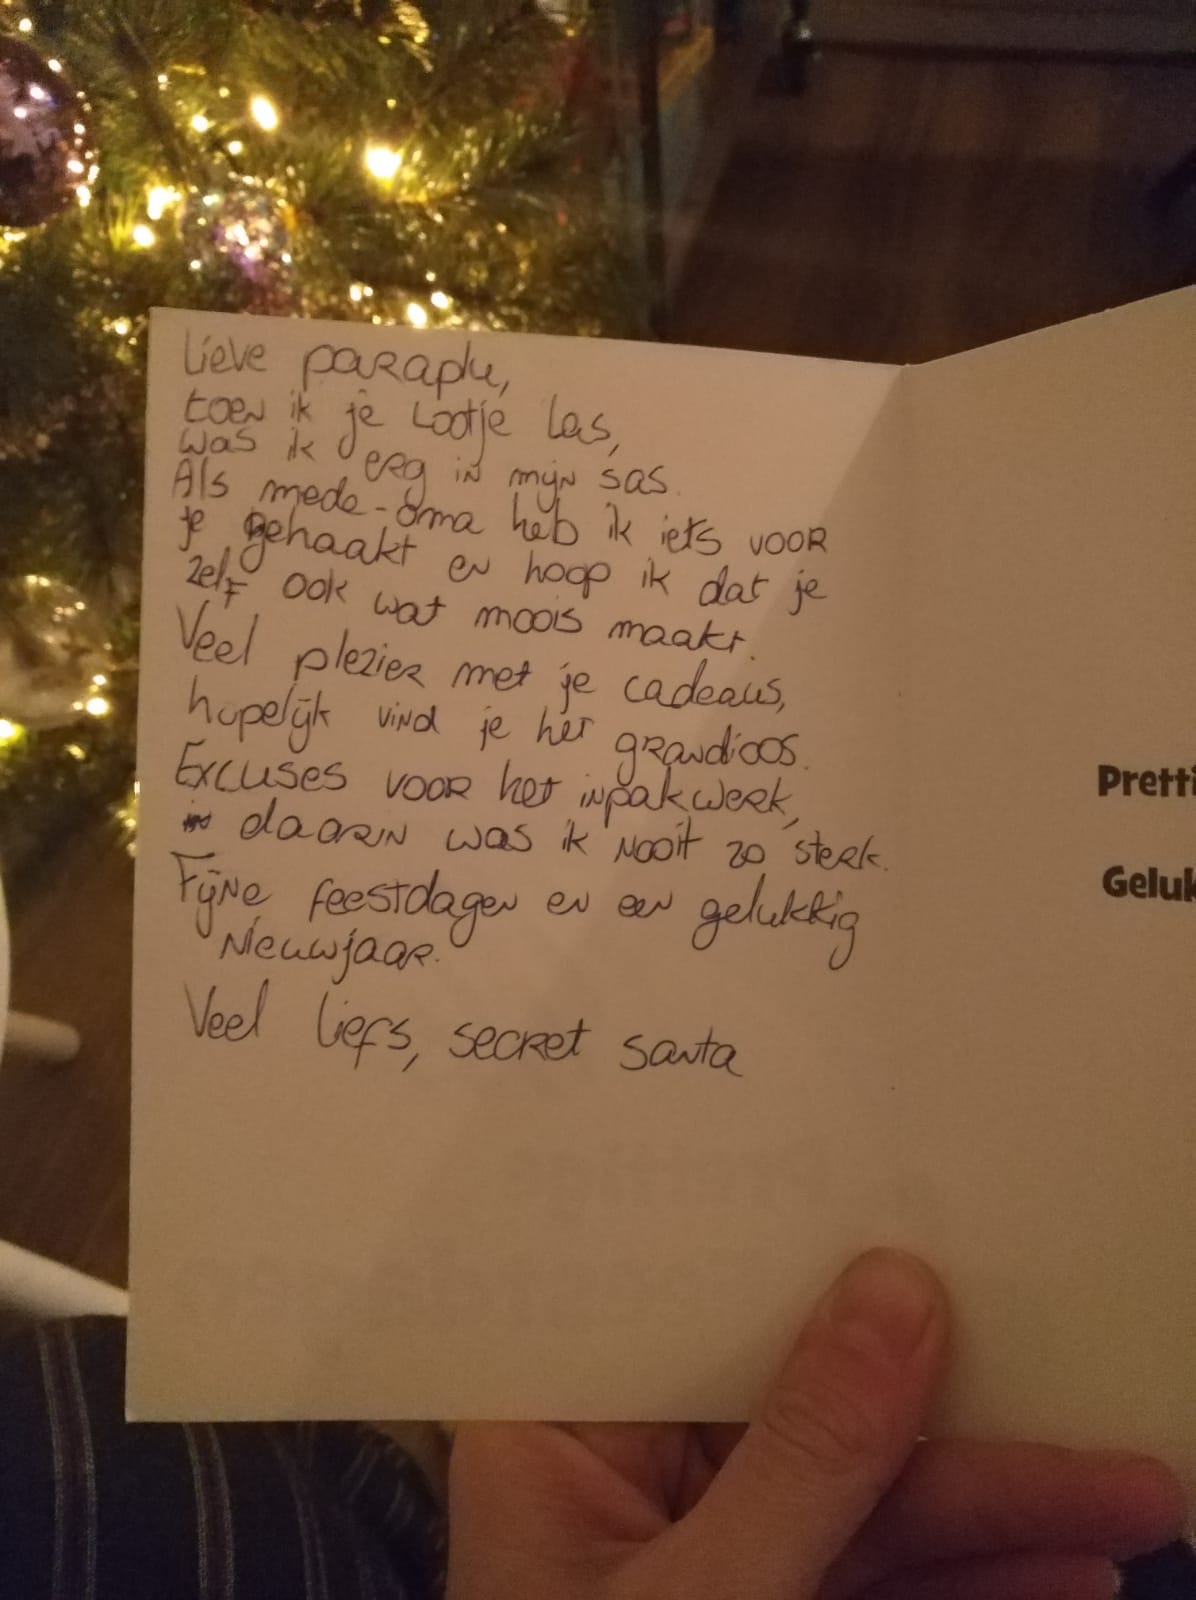 Lieve paraplu,
toen ik je Lootje las,
was ik erg in mijn sas.
Als mede-oma heb ik iets voor
je gehaakt en hoop ik dat je
zelf ook wat moois maakt.
Veel plezier met je cadeaus,
hopelijk vind je het grandioos.
Excuses voor het inpakwerk,
daarin was ik nooit zo sterk.
Fijne feestdagen en een gelukkig
Nieuwjaar.
Veel liefs, secret santa
Pretti
Geluk